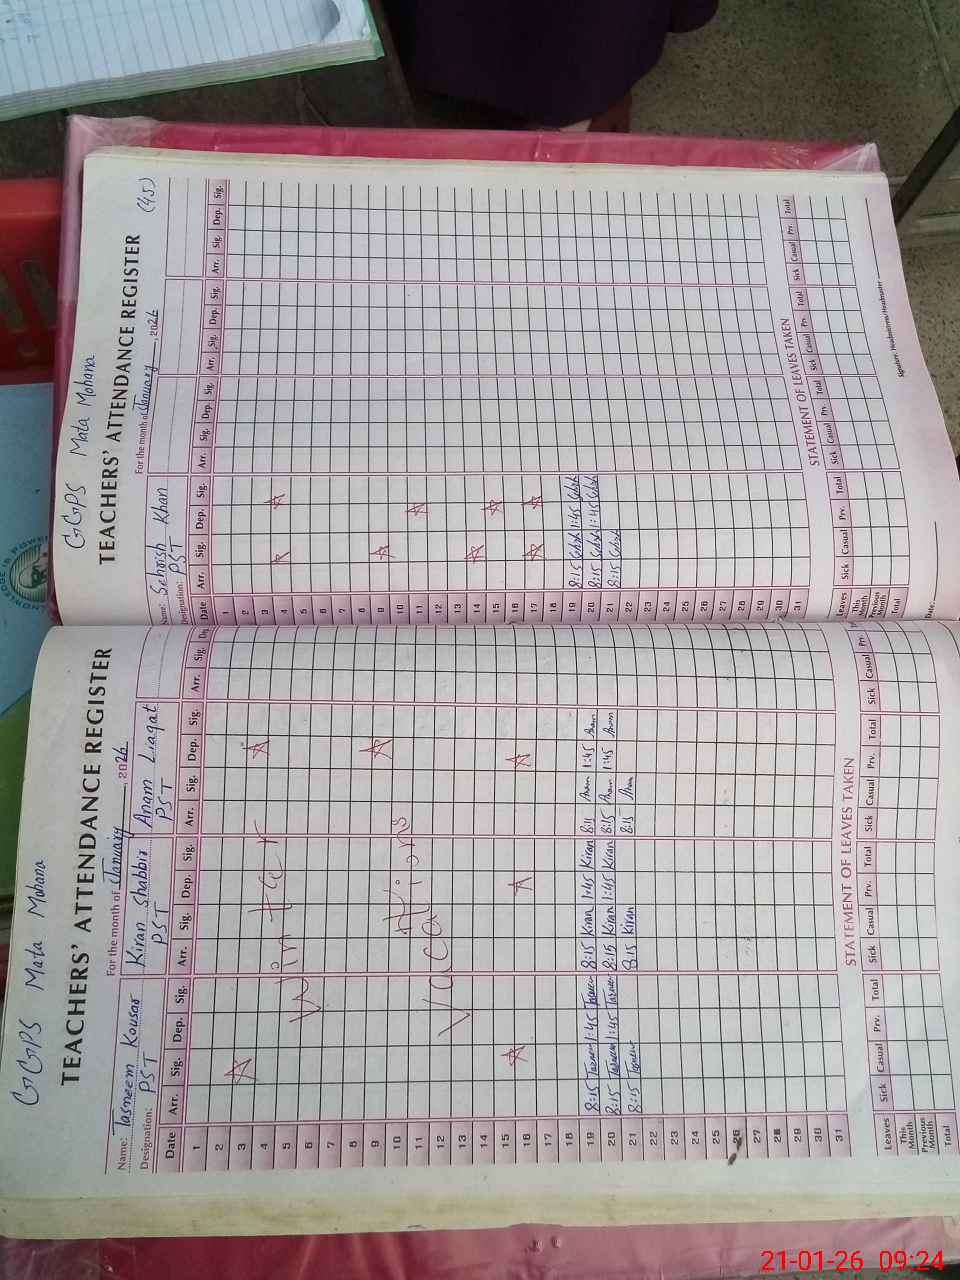 GGPS Mata Mohana
TEACHERS' ATTENDANCE REGISTER
For the month of January, 2026
Name: Tasneem Kousar Kiran Shabbir Anam Liaqat
Designation: PST PST PST
Date Arr. Sig. Dep. Sig. Arr. Sig. Dep. Sig. Arr. Sig. Dep. Sig. Arr. Sig.
1
2
3
4
5
6
7
8
9
10
11
12
13
14
15
16
17
18
Winter
Vacations
19 8:15 Tasneem 1:45 Tasneem 8:15 Kiran 1:45 Kiran 8:15 Anam 1:45 Anam
20 8:15 Tasneem 1:45 Tasneem 8:15 Kiran 1:45 Kiran 8:15 Anam 1:45 Anam
21 8:15 Tasneem 8:15 Kiran 8:15 Anam
22
23
24
25
26
27
28
29
30
31
STATEMENT OF LEAVES TAKEN
Leaves Sick Casual Prv. Total Sick Casual Prv. Total Sick Casual Prv. Total Sick Casual
This Month
Previous Month
Total
GGPS Mata Mohana
(45)
TEACHERS' ATTENDANCE REGISTER
For the month of January, 2026
Name: Sehrish Khan
Designation: PST
Date Arr. Sig. Dep. Sig. Arr. Sig. Dep. Sig. Arr. Sig. Dep. Sig. Arr. Sig. Dep. Sig.
1
2
3
4
5
6
7
8
9
10
11
12
13
14
15
16
17
18
19 8:15 1:45
20 8:15 1:45
21 8:15
22
23
24
25
26
27
28
29
30
31
STATEMENT OF LEAVES TAKEN
Leaves Sick Casual Prv. Total Sick Casual Prv. Total Sick Casual Prv. Total Sick Casual Prv. Total
This Month
Previous Month
Total
Date:
Signature: Headmistress/Headmaster
21-01-26 09:24